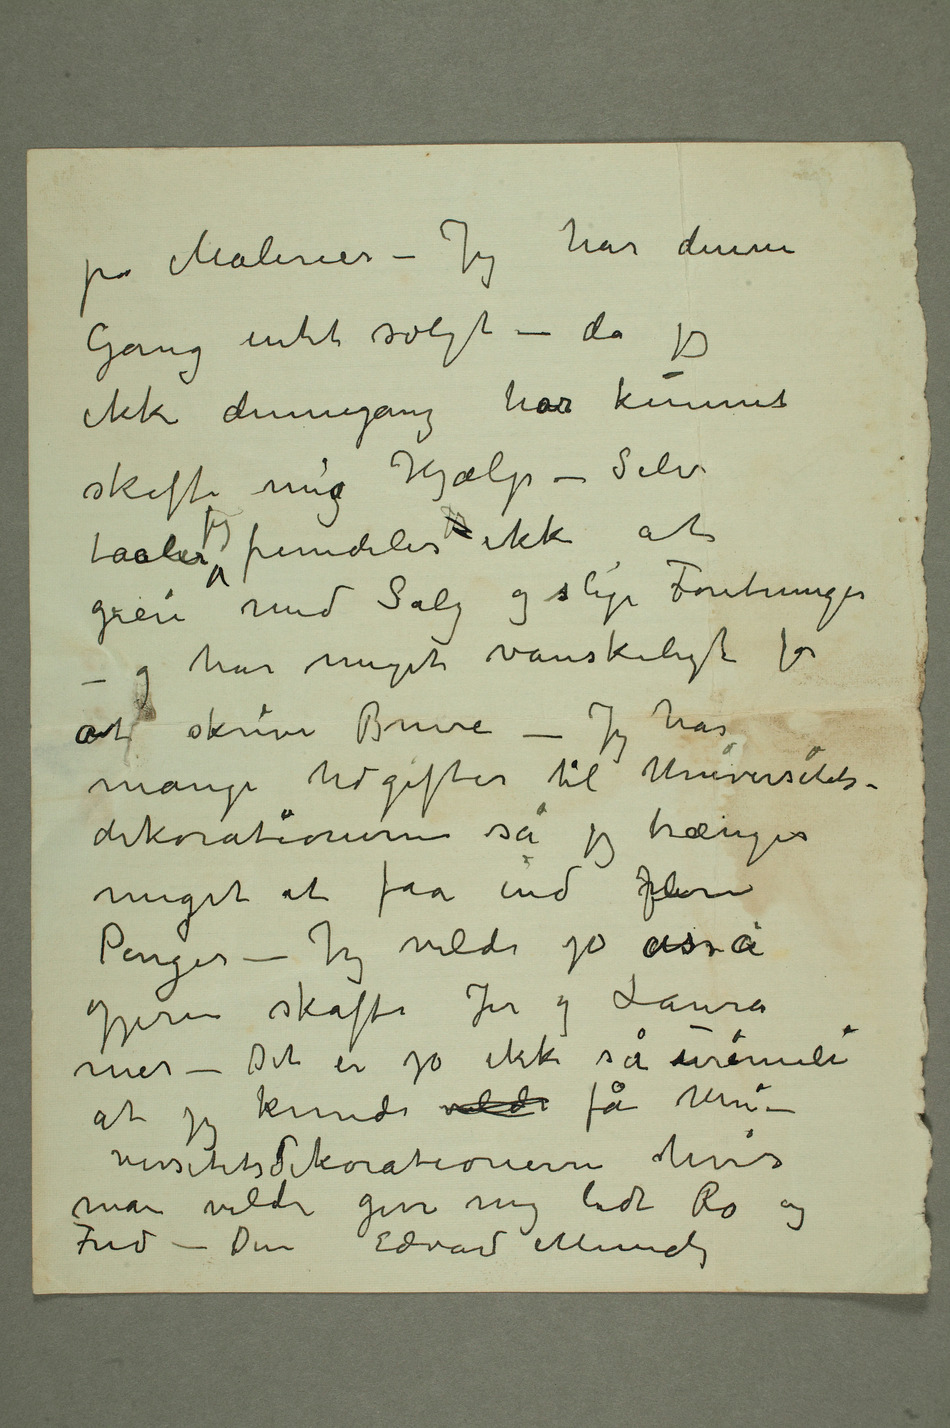 på Malerier – Jeg har denne
Gang intet solgt – da jeg
ikke dennegang har kunnet
skaffe mig Hjælp – Selv
taaler jeg fremdeles ikke at
greie med Salg og slige Forretninger
– og har meget vanskeligt for
at skrive Breve – Jeg har
mange Udgifter til Universitets-
dekorationerne så jeg trænger
meget at faa ind flere
Penger – Jeg vilde jo også
gjerne skaffe Jer og Laura
mer – Det er jo ikke så urimeli
at jeg kunde vilde få Uni-
versitetsdekorationerne hvis
man vilde give mig lidt Ro og
Fred – Din Edvard Munch